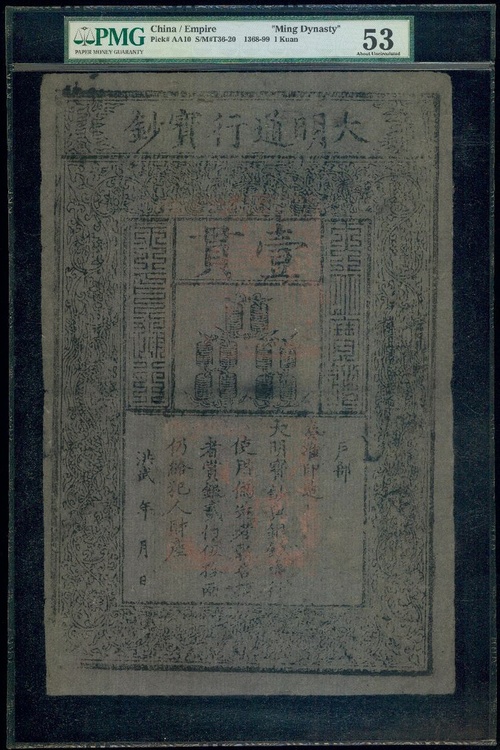 PMG
PAPER MONEY GUARANTY
China / Empire "Ming Dynasty"
Pick# AA10 S/M#T36-20 1368-99 1 Kuan
53
About Uncirculated
大明通行寶鈔
壹貫
戶部
奏准印造
大明寶鈔與銅錢通行
使用偽造者斬告捕
者賞銀貳佰伍拾兩
仍給犯人財產
洪武 年 月 日